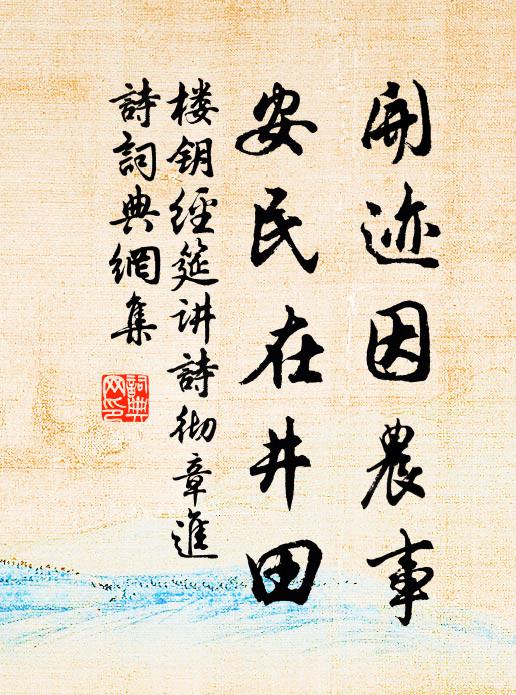 開迹因農事
安民在井田
楼钥經筵讲詩彻章進
詩詞典網集
詞典网印